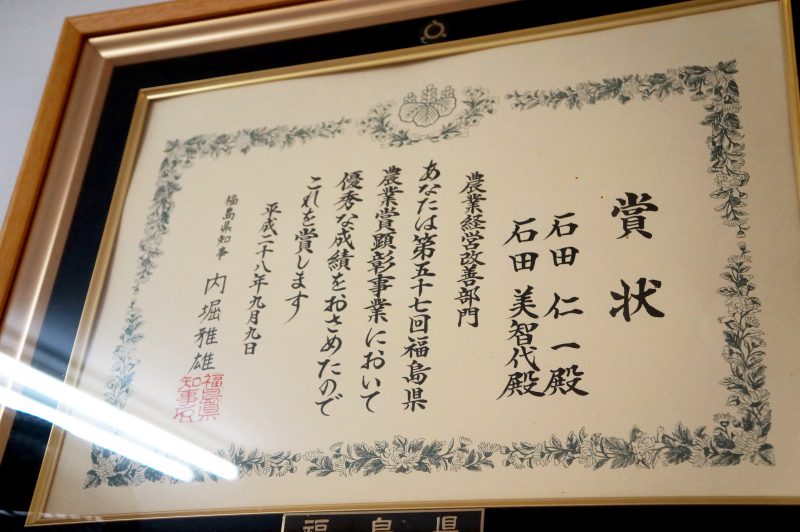 賞状
石田 仁一殿
石田 美智代殿
農業経営改善部門
あなたは第五十七回福島県
農業賞顕彰事業において
優秀な成績をおさめたので
これを賞します
平成二十八年九月九日
福島県知事 内堀雅雄
福島県
知事之印
福島県